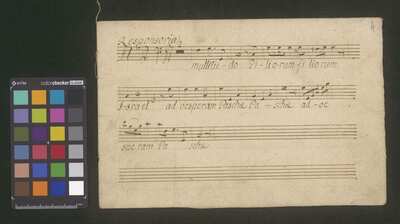 Responsoria
4
multitu-do Fi-li-o-rum fi-li-o-rum
Israel ad vesperam Pascha Pa - scha ad ve
speram Pa scha
colorchecker